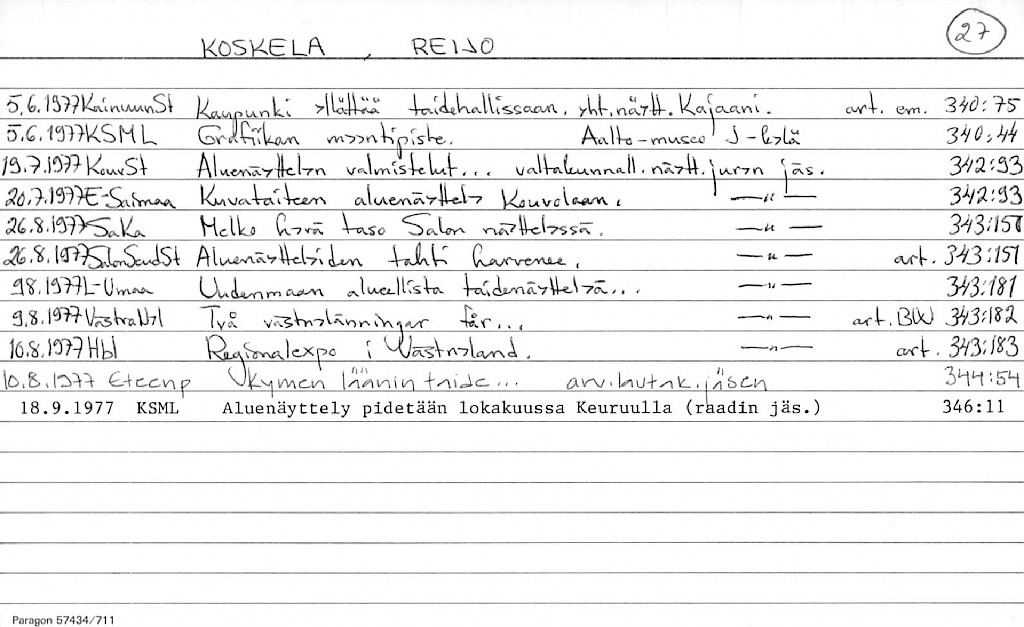 27
KOSKELA, REIJO
5.6.1977 KainuunSt Kaupunki yllättää taidehallissaan. yht.näytt. Kajaani. art. em. 340:75
5.6.1977 KSML Grafiikan myyntipiste. Aalto-museo J-kylä 340:44
19.7.1977 KouvSt Aluenäyttelyn valmistelut... valtakunnall. näytt. juryn jäs. 342:93
20.7.1977 E-Saimaa Kuvataiteen aluenäyttely Kouvolaan. —"— 342:93
26.8.1977 SaKa Melko hyvä taso Salon näyttelyssä. —"— 343:151
26.8.1977 SalonSeudSt Aluenäyttelyiden tahti harvenee. —"— art. 343:151
9.8.1977 L-Uusimaa Uudenmaan alueellista taidenäyttelyä... —"— 343:181
9.8.1977 VästraNyl Två västnylänningar får... —"— art. BW 343:182
10.8.1977 Hbl Regionalexpo i Västnyland. —"— art. 343:183
10.8.1977 Eteenp Kymen läänin taide... arv.lautak.jäsen 344:54
18.9.1977 KSML Aluenäyttely pidetään lokakuussa Keuruulla (raadin jäs.) 346:11
Paragon 57434/711